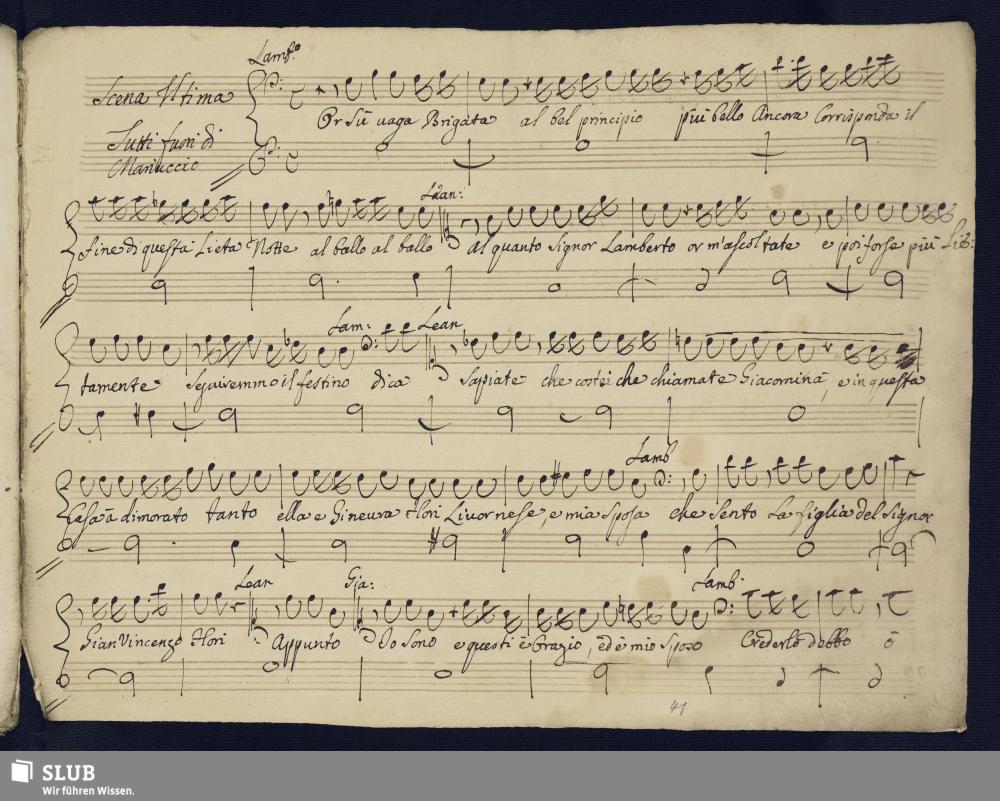 Lamb.º
Scena Vltima
Or Sù uaga Brigata al bel principio più bello Ancora Corrisponda il
Tutti fuori di
Mariuccio
Lean:
fine di questa Lieta Notte al ballo al ballo Al quanto Signor Lamberto or m'ascoltate e poi forse più Lie=
Lam: Lean
tamente Seguiremmo il festino dica Sapiate che costei che chiamate Giacomina, e in questa
Lamb
Casa à dimorato tanto ella e Gineura Hori Liuornese, e mia Sposa che Sento La figlia del Signor
Lean Gia: Lamb.
Gian Vincenzo Hori Appunto Io sono e questi è Orazio, ed è mio Sposo Crederlo debbo ò
41
SLUB
Wir führen Wissen.